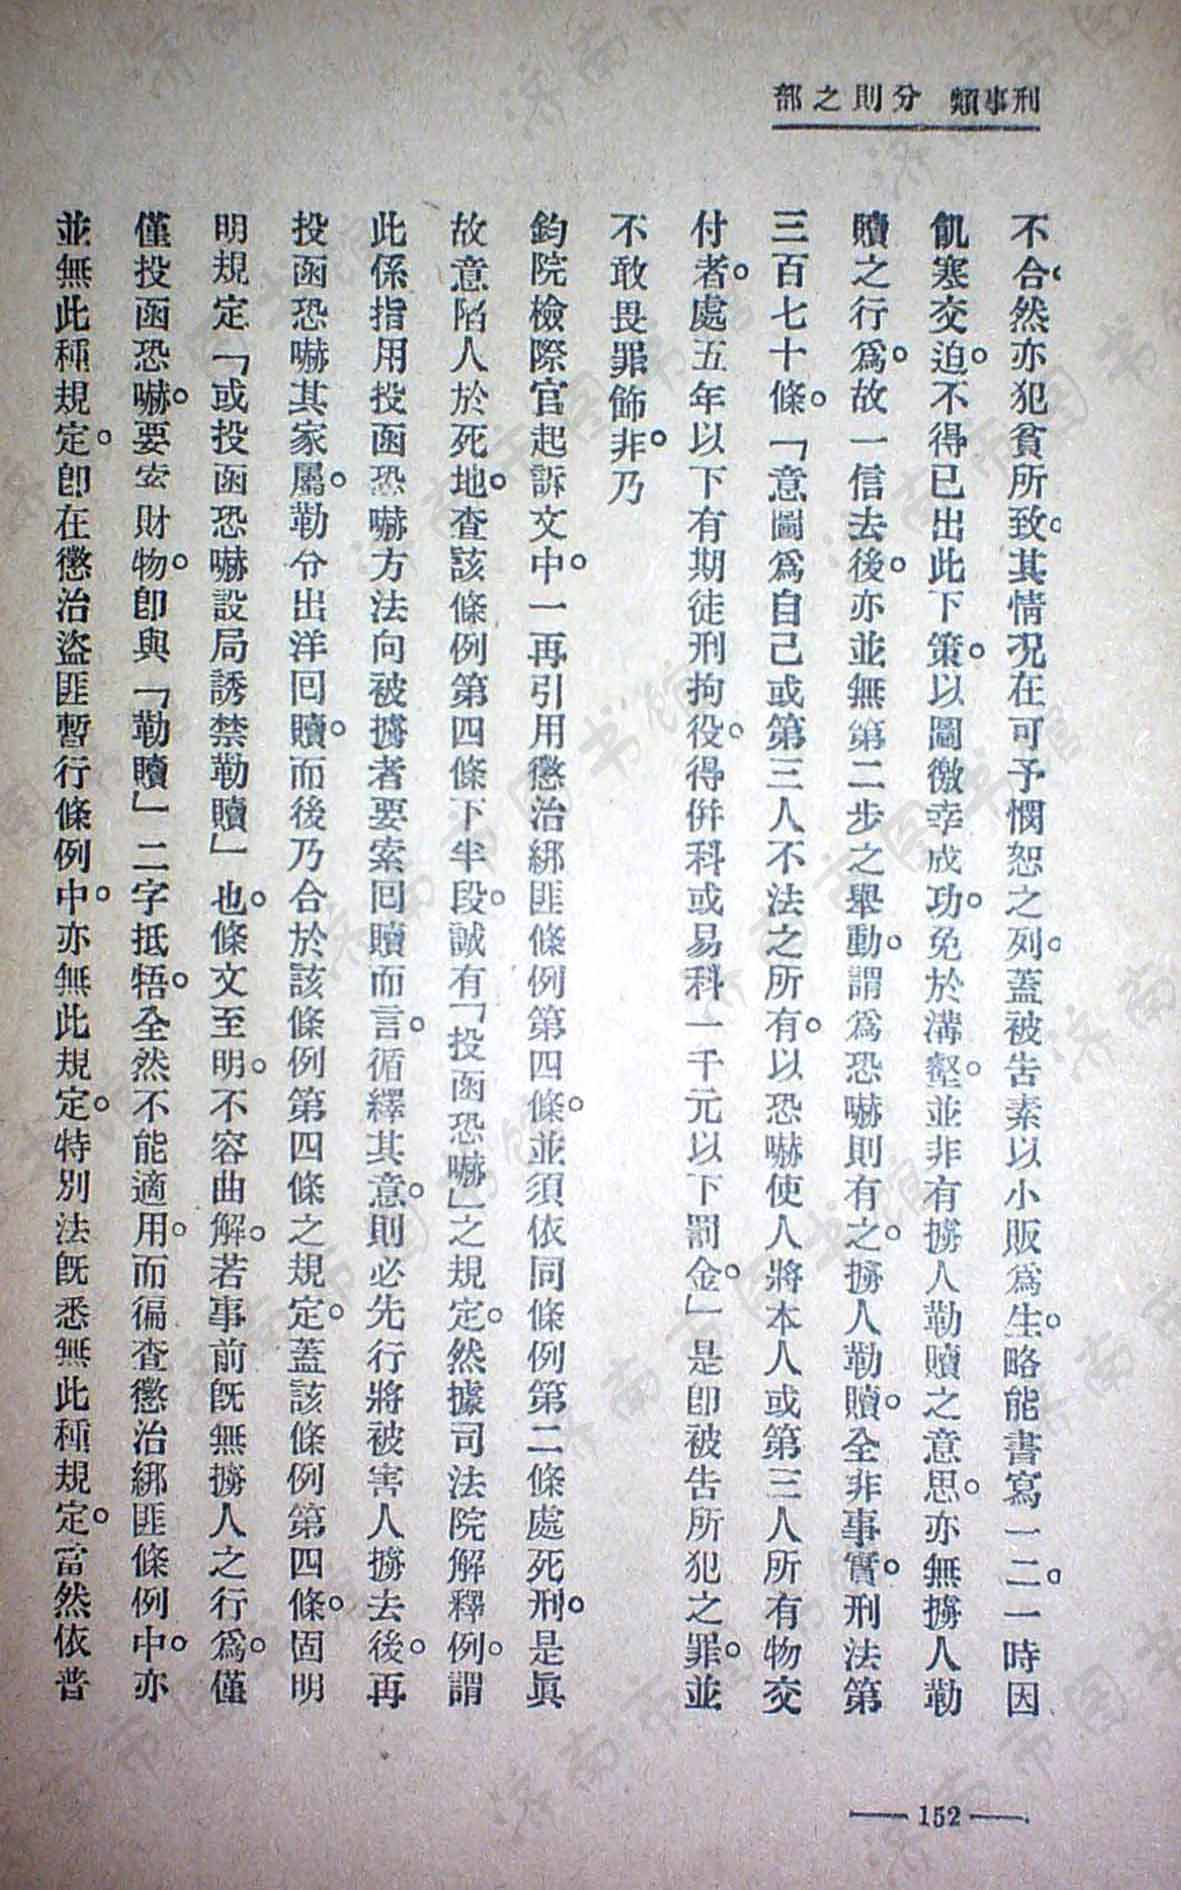 刑事類　分則之部
不合。然亦犯貧所致。其情况在可予憫恕之列。蓋被告素以小販爲生。略能書寫一二。一時因
飢寒交迫。不得已出此下策。以圖徼幸成功。免於溝壑。並非有擄人勒贖之意思。亦無擄人勒
贖之行爲。故一信去後。亦並無第二步之舉動。謂爲恐嚇則有之。擄人勒贖。全非事實。刑法第
三百七十條。「意圖爲自己或第三人不法之所有。以恐嚇使人將本人或第三人所有物交
付者。處五年以下有期徒刑拘役。得併科或易科一千元以下罰金。」是卽被告所犯之罪。並
不敢畏罪飾非。乃
鈞院檢際官起訴文中。一再引用懲治綁匪條例第四條。並須依同條例第二條處死刑。是眞
故意陷人於死地。查該條例第四條下半段。誠有「投函恐嚇」之規定。然據司法院解釋例。謂
此係指用投函恐嚇方法向被擄者要索回贖而言。循繹其意。則必先行將被害人擄去後。再
投函恐嚇其家屬。勒令出洋回贖。而後乃合於該條例第四條之規定。蓋該條例第四條。固明
明規定「或投函恐嚇設局誘禁勒贖」也。條文至明。不容曲解。若事前旣無擄人之行爲。僅
僅投函恐嚇。要索財物。卽與「勒贖」二字抵牾。全然不能適用。而徧查懲治綁匪條例中。亦
並無此種規定。卽在懲治盜匪暫行條例中。亦無此規定。特別法旣悉無此種規定。當然依普
152
济南市图书馆